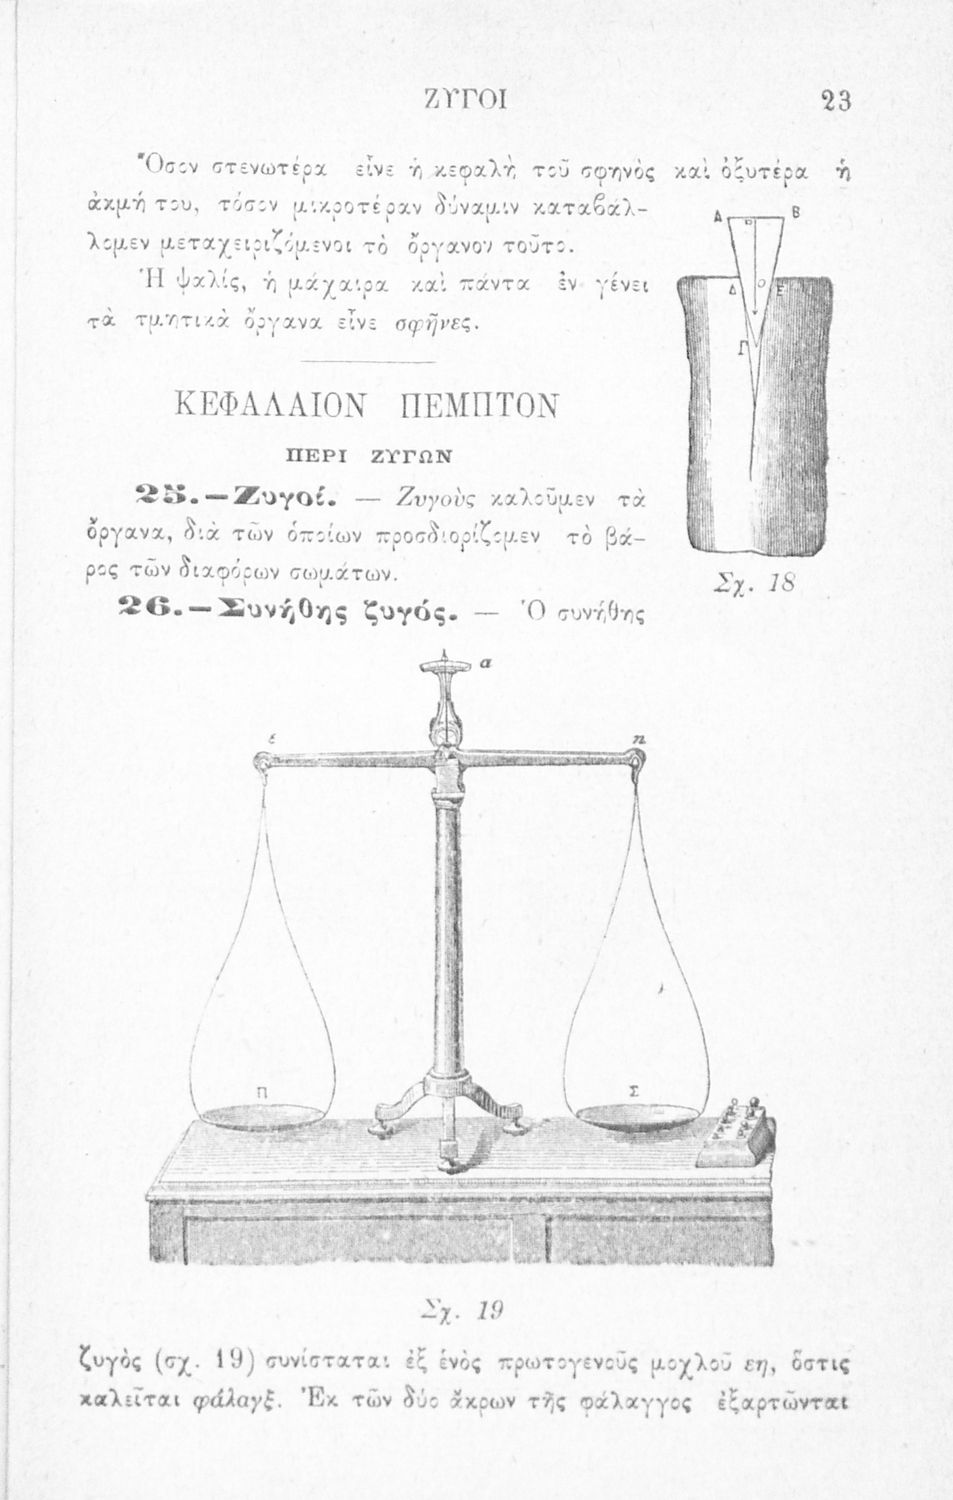 ΖΥΓΟΙ 23
Ὅσον στενωτέρα εἶνε ἡ κεφαλὴ τοῦ σφηνὸς καὶ ὀξυτέρα ἡ
ἀκμή του, τόσον μικροτέραν δύναμιν καταβάλ-
λομεν μεταχειριζόμενοι τὸ ὄργανον τοῦτο.
Ἡ ψαλίς, ἡ μάχαιρα καὶ πάντα ἐν γένει
τὰ τμητικὰ ὄργανα εἶνε σφῆνες.
Α Β
Δ Ε
Γ
Σχ. 18
ΚΕΦΑΛΑΙΟΝ ΠΕΜΠΤΟΝ
ΠΕΡΙ ΖΥΓΩΝ
25.—Ζυγοί. — Ζυγοὺς καλοῦμεν τὰ
ὄργανα, διὰ τῶν ὁποίων προσδιορίζομεν τὸ βά-
ρος τῶν διαφόρων σωμάτων.
26.—Συνήθης ζυγός. — Ὁ συνήθης
α
ε η
Π Σ
Σχ. 19
ζυγὸς (σχ. 19) συνίσταται ἐξ ἑνὸς πρωτογενοῦς μοχλοῦ εη, ὅστις
καλεῖται φάλαγξ. Ἐκ τῶν δύο ἄκρων τῆς φάλαγγος ἐξαρτῶνται